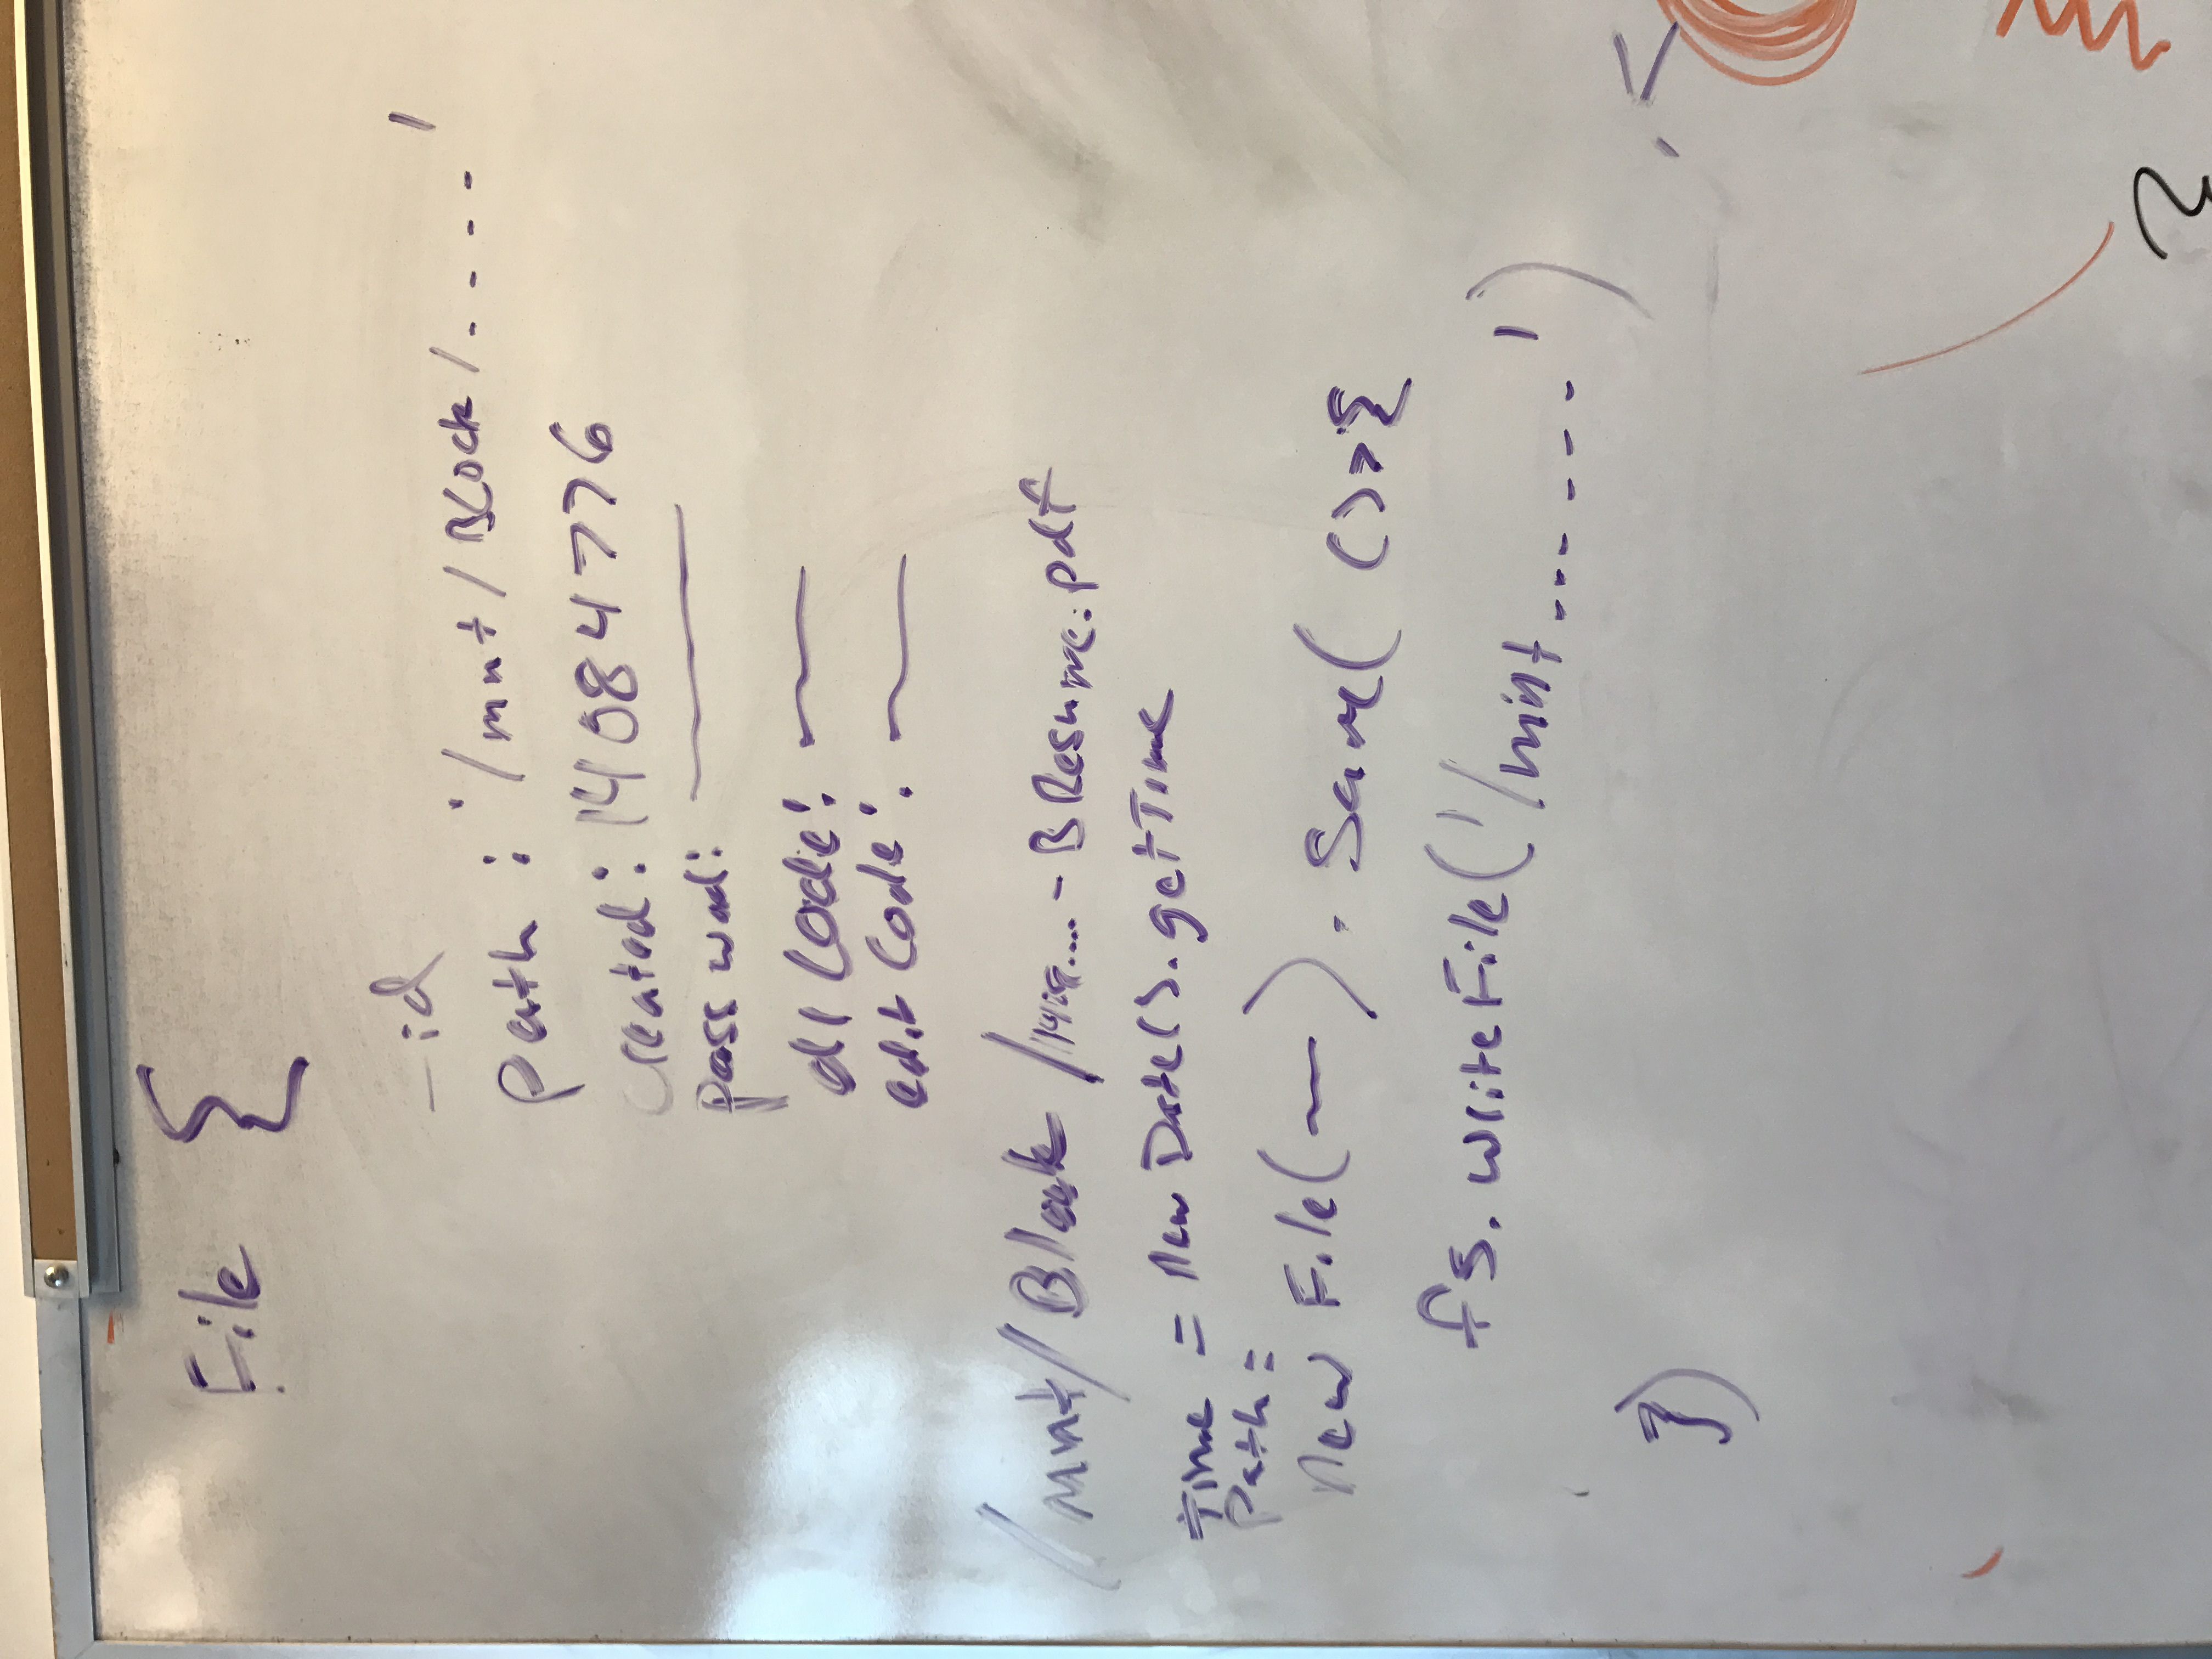 File {
_id
path : '/mnt/Block/....'
created: 14084776
password:
dlCode:
editCode:
/mnt/Block/ - BResume.pdf
time = new Date().getTime
Path =
new File(—).Save( ()=>{
fs.writeFile('/mnt......')
})